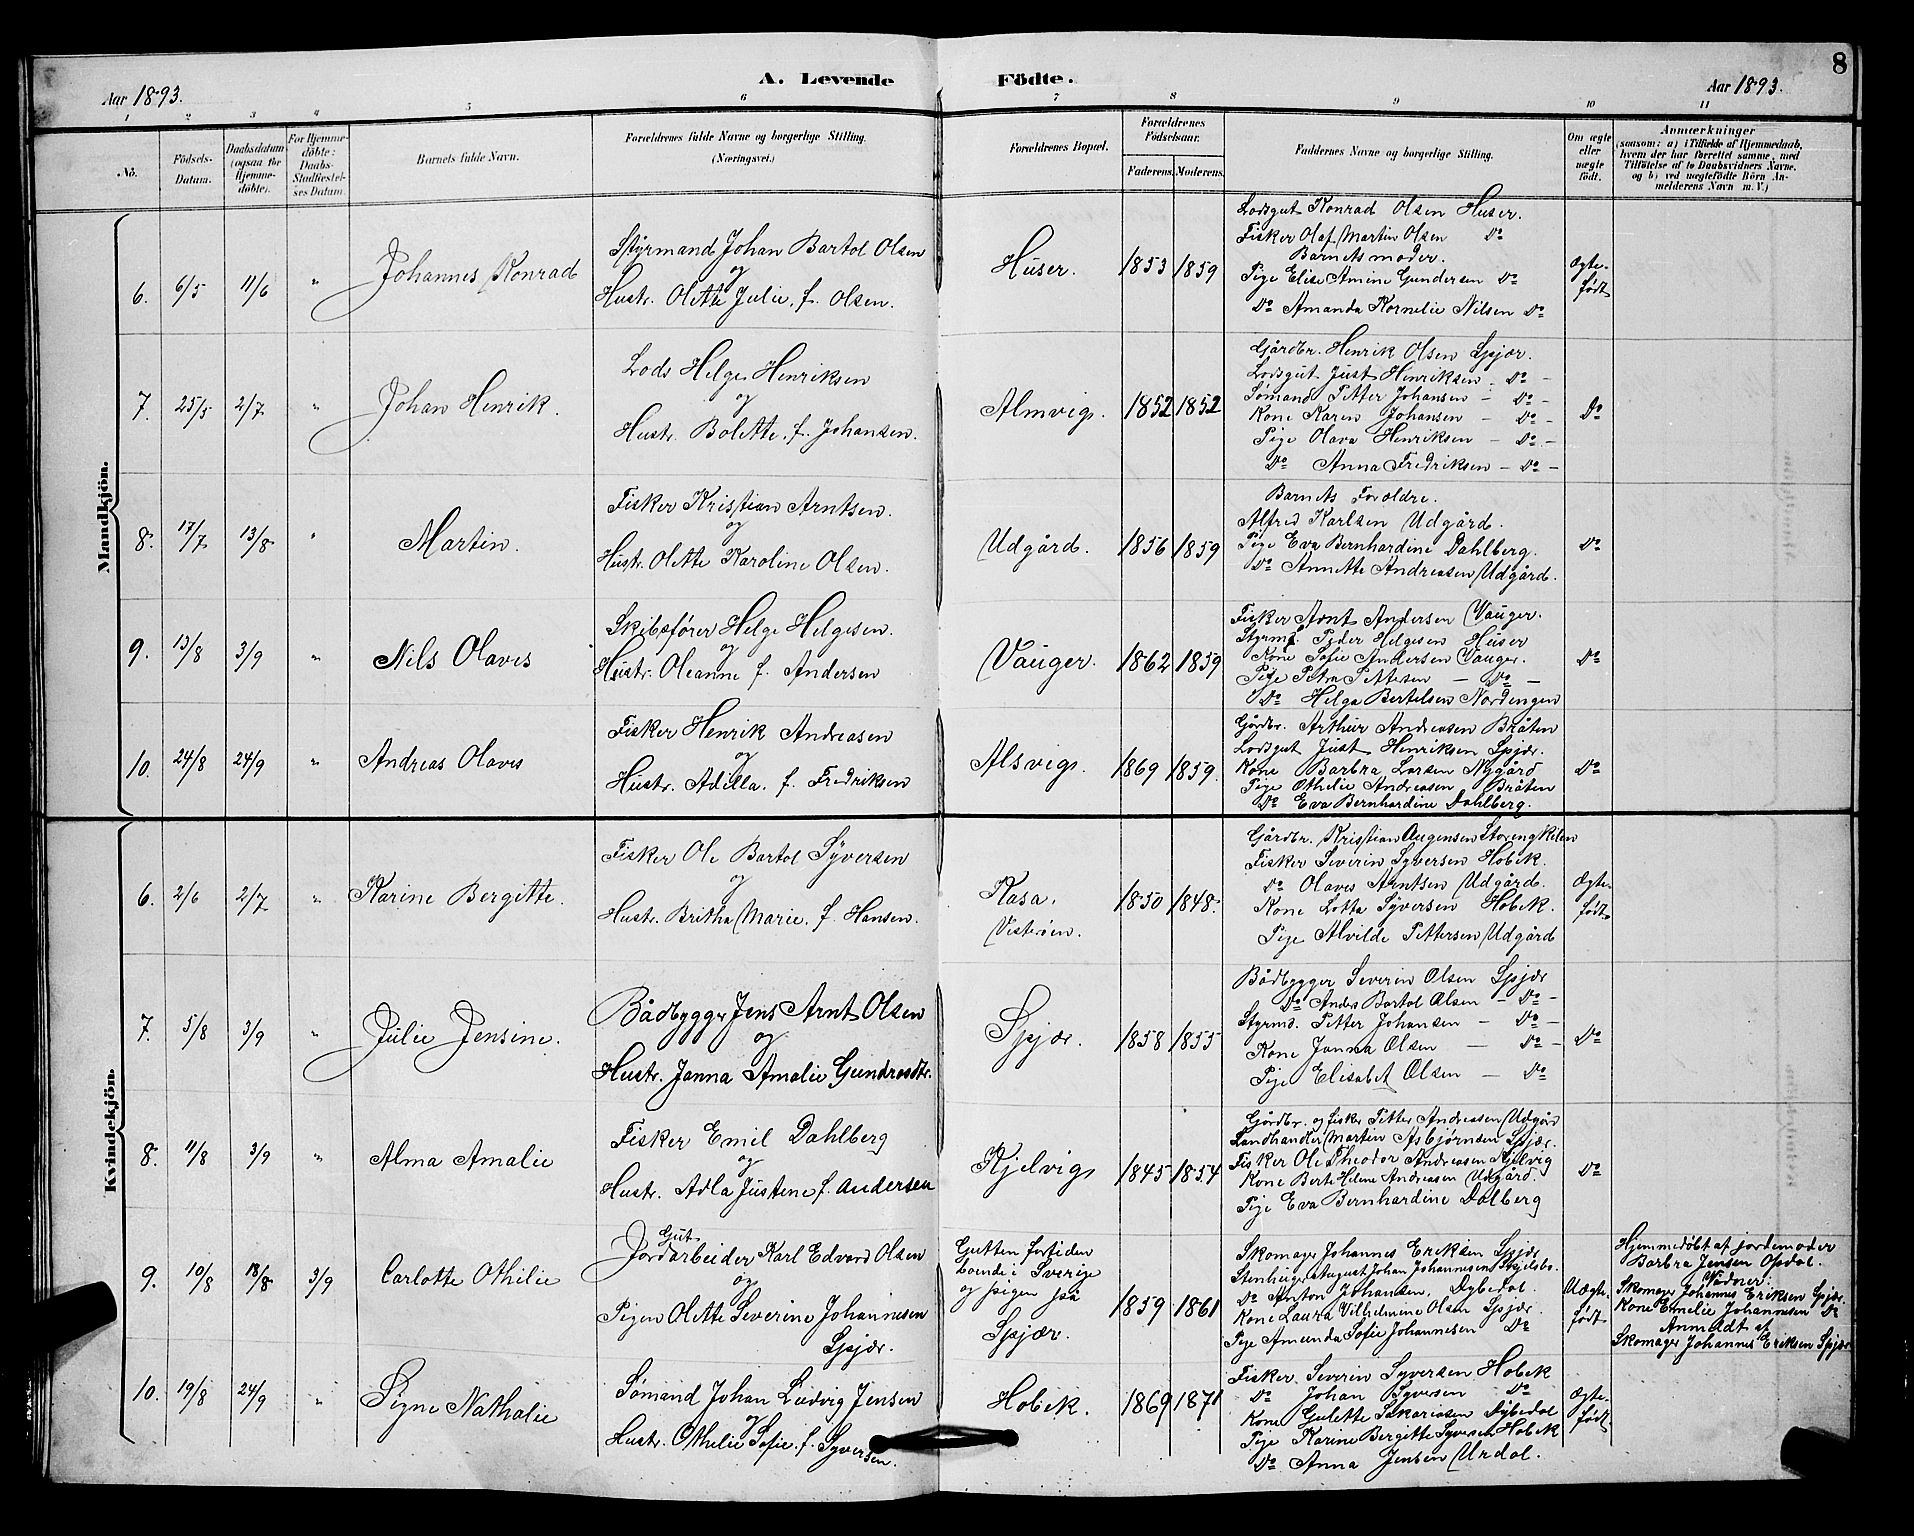 8
A. Levende Födte.
Aar 1893.
Aar 1893.
1 2 3 4 5 6 7 8 9 10 11
No.
Födsels-
Datum.
Daabsdatum
(ogsaa for
Hjemme-
döbte).
For Hjemme-
döbte:
Daabs-
Stadfæstel-
ses Datum.
Barnets fulde Navn.
Forældrenes fulde Navne og borgerlige Stilling.
(Næringsvei.)
Forældrenes Bopæl.
Forældrenes
Födselsaar.
Faderens.
Moderens.
Faddernes Navne og borgerlige Stilling.
Om ægte
eller
uægte
födt.
Anmærkninger
(saasom: a) i Tilfælde af Hjemmedaab,
hvem der har forrettet samme, med
Tilföielse af to Daabsvidners Navne,
og b) ved uægtefödte Börn An-
melderens Navn m. V.)
Mandkjön.
6. 6/5 11/6 " Johannes Konrad
Styrmand Johan Bartol Olsen
og
Hustr. Olette Julie, f. Olsen.
Huser. 1853 1859
Lodsgut Konrad Olsen Huser.
Fisker Olaf Martin Olsen Do
Barnets moder.
Pige Elise Amine Gundersen Do
Do Amanda Kornelie Nilsen Do
Ægte-
født
7. 25/5 2/7 " Johan Henrik.
Lods Helge Henriksen
og
Hustr. Bolette, f. Johansen.
Almvig. 1852 1852
Gårdbr. Henrik Olsen Spjær.
Lodsgut Just Henriksen - Do -
Sømand Petter Johansen - Do -
Kone Karen Johansen - Do -
Pige Olava Henriksen - Do -
Do Anna Fredriksen - Do -
Do
8. 17/7 13/8 " Martin.
Fisker Kristian Arntsen.
og
Hustr. Olette Karoline Olsen.
Udgård. 1856 1859
Barnets Foroldre.
Alfred Karlsen Udgård.
Pige Eva Bernhardine Dahlberg.
Do Annette Andreasen Udgård.
Do
9. 13/8 3/9 " Nils Olaves
Skibsfører Helge Helgesen.
og
Hustr. Oleanne f. Andersen
Vauger. 1862 1859
Fisker Arnt Andersen Vauger.
Styrmd. Peder Helgesen Huser
Kone Sofie Andersen Vauger.
Pige Petra Pettersen - Do -
Do Helga Bertelsen Nordengen
Do
10. 24/8 24/9 " Andreas Olaves
Fisker Henrik Andreasen
og
Hustr. Adilla, f. Fredriksen
Alsvig. 1869 1859.
Gårdbr. Arthur Andreasen Bråten
Lodsgut Just Henriksen Spjær.
Kone Barbra Larsen Nygård
Pige Othelie Andreasen Bråten
Do Eva Bernhardine Dahlberg.
Do
Kvindekjön.
6. 2/6 2/7 " Karine Bergitte.
Fisker Ole Bartol Syversen
og
Hustr. Britha Marie, f. Hansen.
Kasa,
Vesterøen.
1850 1848.
Gårdbr. Kristian Augensen Storengkilen
Fisker Severin Syversen Hobek.
Do Olaves Arntsen Udgård.
Kone Lotta Syversen Hobek.
Pige Alvilde Pettersen Udgård
Ægte-
født
7. 5/8 3/9 " Julie Jensine.
Bådbygger Jens Arnt Olsen
og
Hustr. Janna Amalie Gundresdtr.
Spjær. 1858 1855
Bådbygger Severin Olsen Spjær
Do Anders Bartol Olsen - Do -
Styrmd. Petter Johansen - Do -
Kone Janna Olsen - Do -
Pige Elisabet Olsen - Do
Do
8. 11/8 3/9 " Alma Amalie
Fisker Emil Dahlberg
og
Hustr. Adla Justene f. Andersen
Kjelvig 1845 1854
Gårdbr. og fisker Petter Andreasen Udgård
Landhandler Martin Asbjørnsen Spjær.
Fisker Ole Theodor Andreasen Kjelvig
Kone Berte Helene Andreasen Udgård.
Pige Eva Bernhardine Dalberg
Do
9. 10/8 18/8 3/9 Carlotte Othilie
Gut
Jordarbeider Karl Edvard Olsen
og
Pigen Olette Severine Johannesen
Spjær.
Gutten fortiden
boende i Sverige
og pigen på
Spjær.
1859 1861
Skomager Johannes Eriksen Spjær
Stenhuger August Johan Johannesen Skjelsbo.
Do Anton Johansen, Dybedal.
Kone Laura Vilhelmine Olsen Spjær.
Pige Amanda Sofie Johannesen Do
Uægte-
født
Hjemmedøbt af jordemoder
Barbra Jensen Opdal.
Vidner:
Skomager Johannes Eriksen Spjær.
Kone Emelie Johannesen Do
Anmeldt af
Skomager Johannes Eriksen Spjær
10. 19/8 24/9 " Signe Nathalie
Sømand Johan Ludvig Jensen
og
Hustr. Othelie Sofie, f. Syversen.
Hobek. 1869 1871
Fisker Severin Syversen Hobek
Do Johan Syversen Do
Kone Gulette Sakariasen Dybedal
Pige Karine Bergitte Syversen Hobek
Do Anna Jensen Urdal.
Ægte-
født